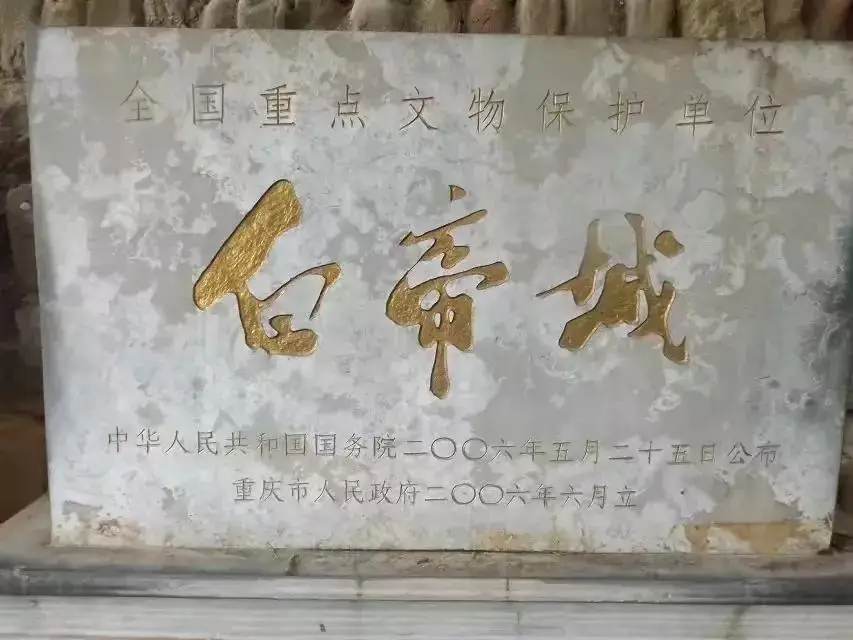 全国重点文物保护单位
白帝城
中华人民共和国国务院二〇〇六年五月二十五日公布
重庆市人民政府二〇〇六年六月立